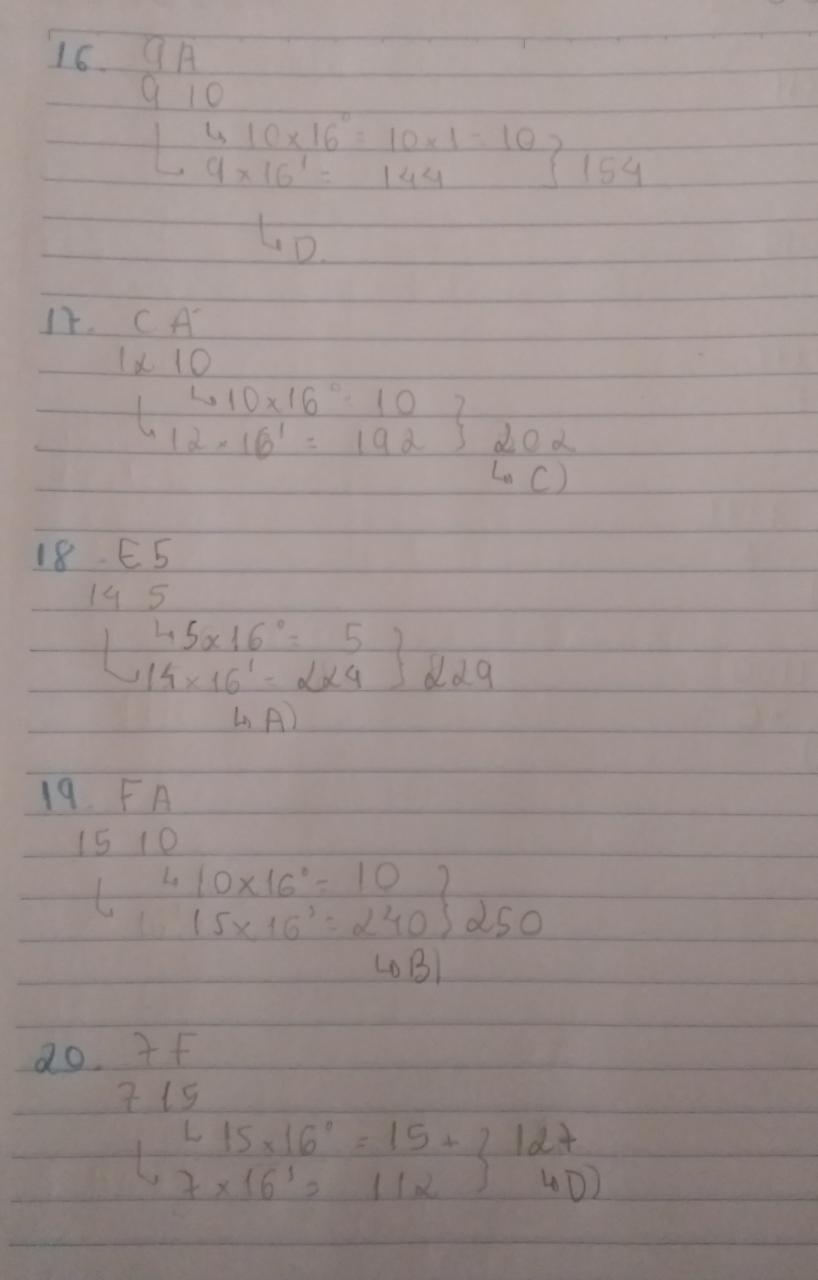 16. 9A
9 10
↳ 10x16⁰ = 10x1 = 10
↳ 9x16¹ = 144 } 154
↳ D.
17. CA
12 10
↳ 10x16⁰ = 10
↳ 12x16¹ = 192 } 202
↳ C)
18. E5
14 5
↳ 5x16⁰ = 5
↳ 14x16¹ = 224 } 229
↳ A)
19. FA
15 10
↳ 10x16⁰ = 10
↳ 15x16¹ = 240 } 250
↳ B)
20. 7F
7 15
↳ 15x16⁰ = 15 + } 127
↳ 7x16¹ = 112 ↳ D)